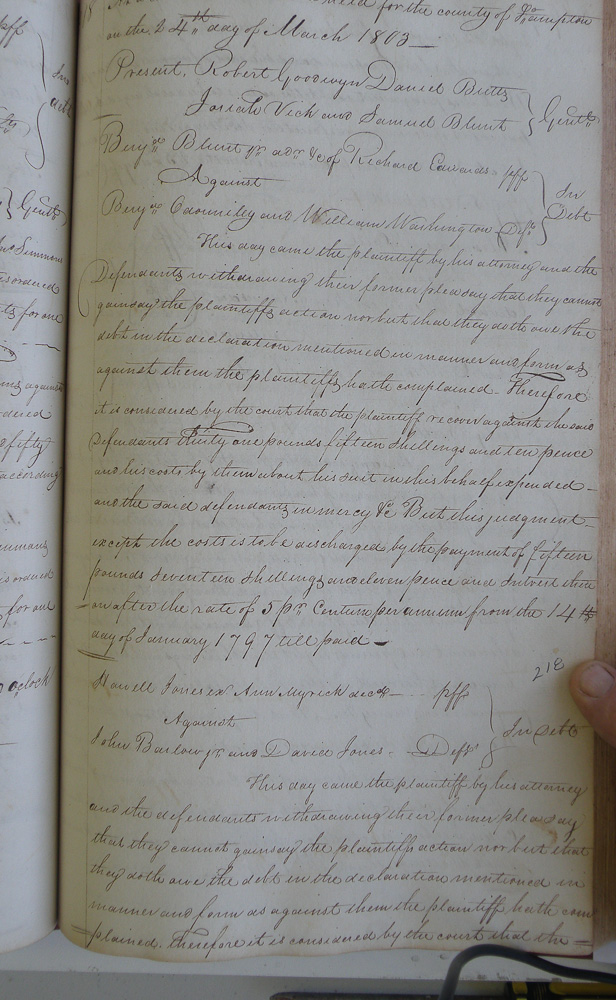 for the county of Southampton
on the 24th day of March 1803
Present, Robert Goodwyn Daniel Butts
Josiah Vick and Samuel Blunt } Gent.
Benja. Blunt jr. adr. &c of Richard Edwards plff
Against } In Debt
Benja. and William Washington Defts
This day came the plaintiff by his attorney and the
Defendants withdrawing their former plea say that they cannot
gainsay the plaintiffs action nor but that they doth owe the
debt in the declaration mentioned in manner and form as
against them the plaintiffs hath complained - Therefore
it is considered by the court that the plaintiff recover against the said
Defendants thirty one pounds fifteen shillings and ten pence
and his costs by them about his suit in this behalf expended -
and the said defendants in mercy &c But this judgment
except the costs is to be discharged by the payment of fifteen
pounds seventeen shillings and eleven pence and Interest there
on after the rate of 5 pr. Centum per annum from the 14th
day of January 1797 till paid
218
Howell Jones ex Ann Myrick decd. plff
Against } In Debt
John Barlow jr. and David Jones - Defts
This day came the plaintiff by his attorney
and the defendants withdrawing their former plea say
that they cannot gainsay the plaintiffs action nor but that
they doth owe the debt in the declaration mentioned in
manner and form as against them the plaintiff hath com
plained. Therefore it is considered by the court that the